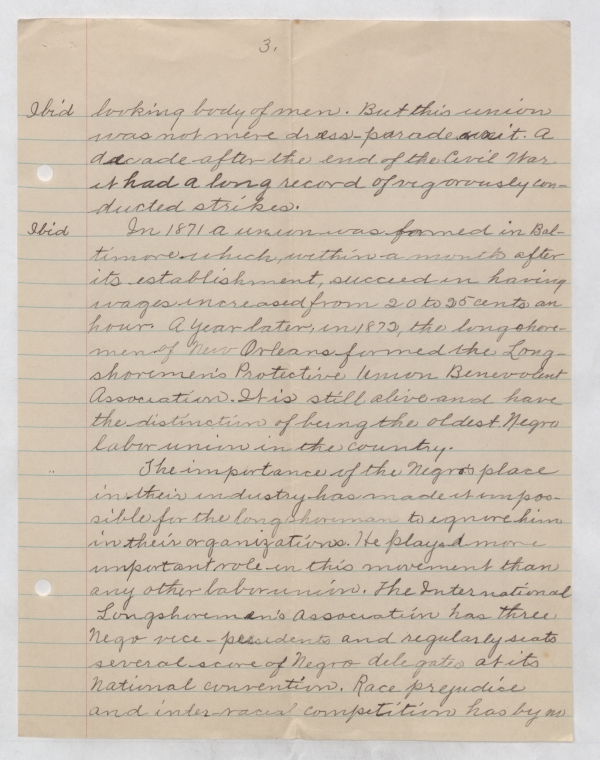 3.
Ibid looking body of men. But this union
was not mere dress-parade unit. A
decade after the end of the Civil War
it had a long record of vigorously con-
ducted strikes.
Ibid In 1871 a union was formed in Bal-
timore which, within a month after
its establishment, succeed in having
wages increased from 20 to 25 cents an
hour. A year later, in 1872, the longshore-
men of New Orleans formed the Long-
shoremen's Protective Union Benevolent
Association. It is still alive and have
the distinction of being the oldest Negro
labor union in the country.
" The importance of the Negro's place
in their industry has made it impos-
sible for the longshoreman to ignore him
in their organizations. He played more
important role in this movement than
any other labor union. The International
Longshoremen's Association has three
Nego vice-presidents and regularly seats
several score of Negro delegates at its
National convention. Race prejudice
and inter-racial competition has by no